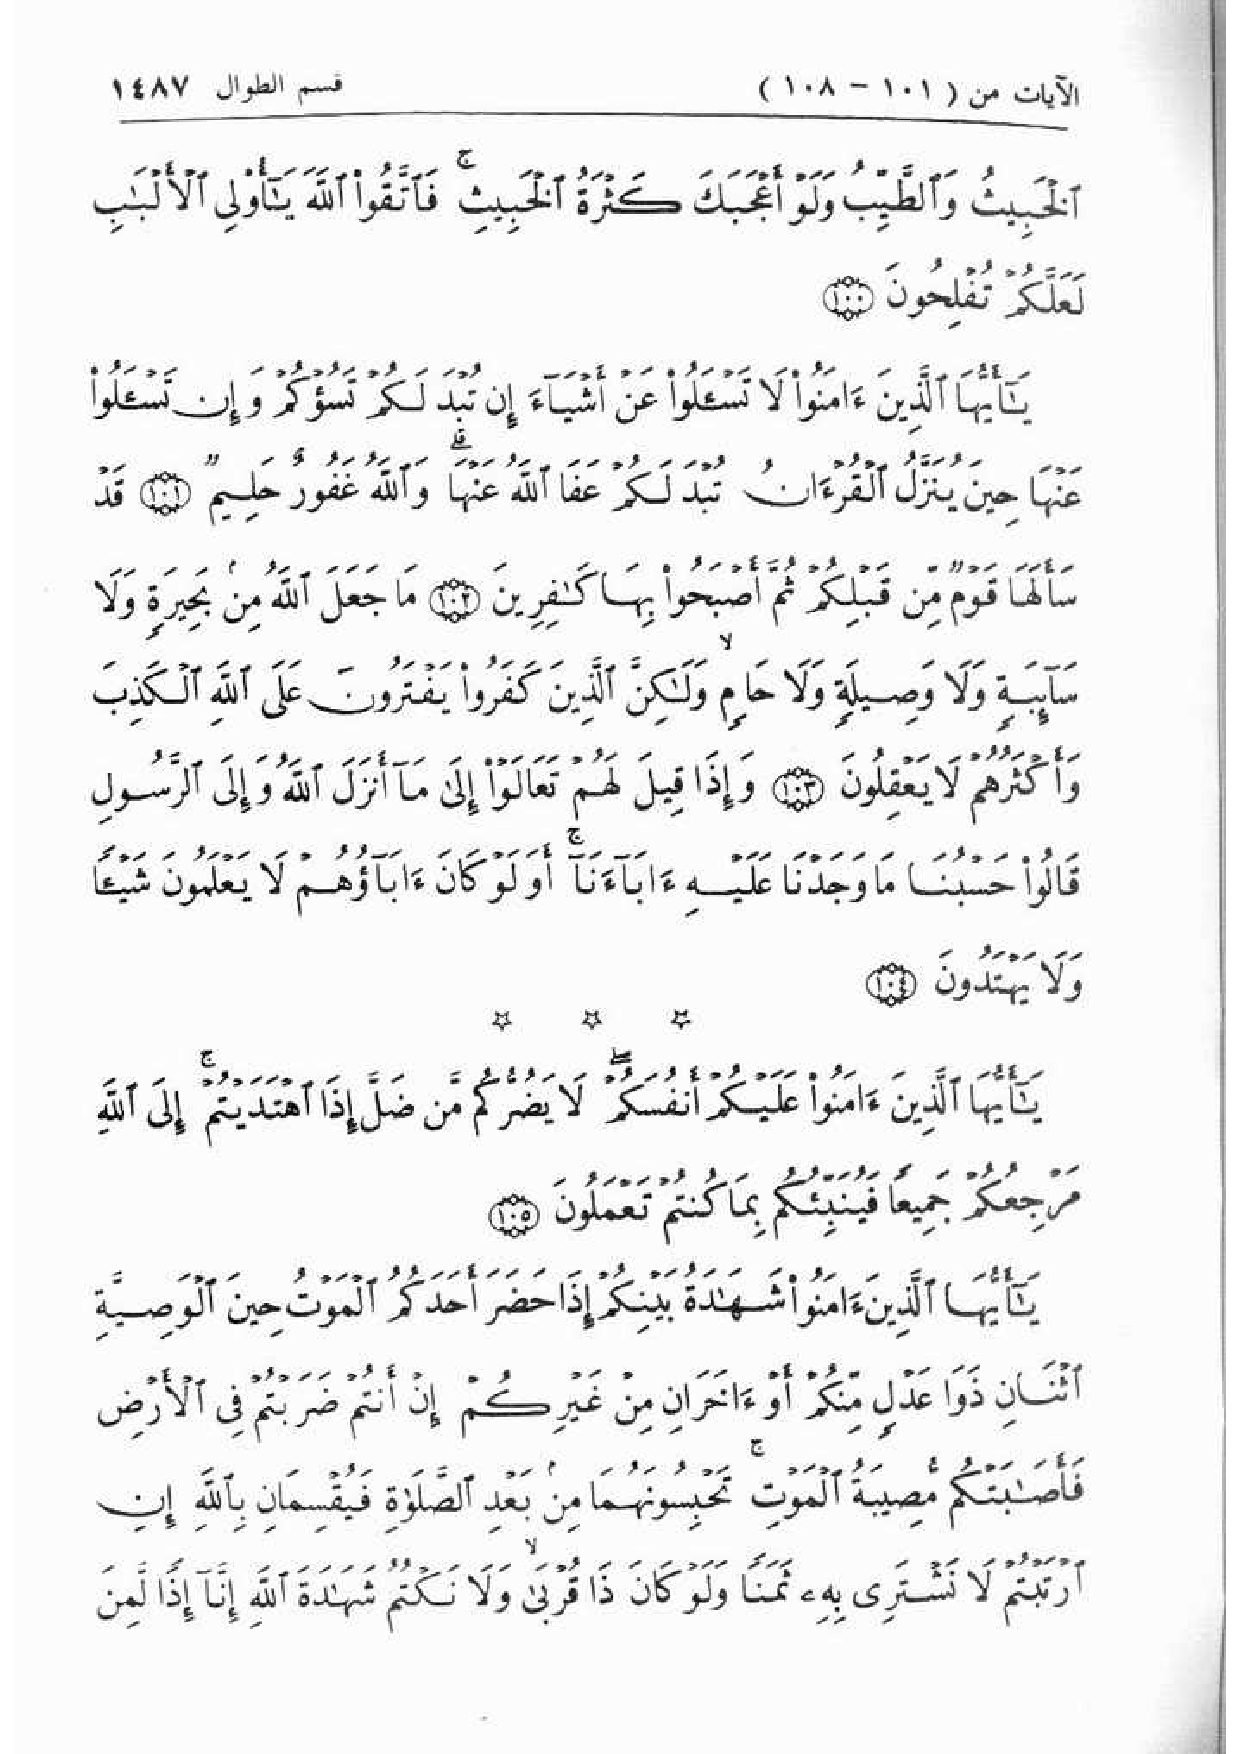 الآيات من ( ١٠١ – ١٠٨ ) قسم الطوال ١٤٨٧
ٱلۡخَبِيثُ وَٱلطَّيِّبُ وَلَوۡ أَعۡجَبَكَ كَثۡرَةُ ٱلۡخَبِيثِۚ فَٱتَّقُواْ ٱللَّهَ يَـٰٓأُوْلِى ٱلۡأَلۡبَـٰبِ
لَعَلَّكُمۡ تُفۡلِحُونَ ۝١٠٠
يَـٰٓأَيُّهَا ٱلَّذِينَ ءَامَنُواْ لَا تَسۡـَٔلُواْ عَنۡ أَشۡيَآءَ إِن تُبۡدَ لَكُمۡ تَسُؤۡكُمۡ وَإِن تَسۡـَٔلُواْ
عَنۡهَا حِينَ يُنَزَّلُ ٱلۡقُرۡءَانُ تُبۡدَ لَكُمۡ عَفَا ٱللَّهُ عَنۡهَاۗ وَٱللَّهُ غَفُورٌ حَلِيمٞ ۝١٠١ قَدۡ
سَأَلَهَا قَوۡمٞ مِّن قَبۡلِكُمۡ ثُمَّ أَصۡبَحُواْ بِهَا كَـٰفِرِينَ ۝١٠٢ مَا جَعَلَ ٱللَّهُ مِنۢ بَحِيرَةٖ وَلَا
سَآئِبَةٖ وَلَا وَصِيلَةٖ وَلَا حَامٖۙ وَلَـٰكِنَّ ٱلَّذِينَ كَفَرُواْ يَفۡتَرُونَ عَلَى ٱللَّهِ ٱلۡكَذِبَ
وَأَكۡثَرُهُمۡ لَا يَعۡقِلُونَ ۝١٠٣ وَإِذَا قِيلَ لَهُمۡ تَعَالَوۡاْ إِلَىٰ مَآ أَنزَلَ ٱللَّهُ وَإِلَى ٱلرَّسُولِ
قَالُواْ حَسۡبُنَا مَا وَجَدۡنَا عَلَيۡهِ ءَابَآءَنَآۚ أَوَلَوۡ كَانَ ءَابَآؤُهُمۡ لَا يَعۡلَمُونَ شَيۡـٔٗا
وَلَا يَهۡتَدُونَ ۝١٠٤
☆ ☆ ☆
يَـٰٓأَيُّهَا ٱلَّذِينَ ءَامَنُواْ عَلَيۡكُمۡ أَنفُسَكُمۡۖ لَا يَضُرُّكُم مَّن ضَلَّ إِذَا ٱهۡتَدَيۡتُمۡۚ إِلَى ٱللَّهِ
مَرۡجِعُكُمۡ جَمِيعٗا فَيُنَبِّئُكُم بِمَا كُنتُمۡ تَعۡمَلُونَ ۝١٠٥
يَـٰٓأَيُّهَا ٱلَّذِينَ ءَامَنُواْ شَهَـٰدَةُ بَيۡنِكُمۡ إِذَا حَضَرَ أَحَدَكُمُ ٱلۡمَوۡتُ حِينَ ٱلۡوَصِيَّةِ
ٱثۡنَانِ ذَوَا عَدۡلٖ مِّنكُمۡ أَوۡ ءَاخَرَانِ مِنۡ غَيۡرِكُمۡ إِنۡ أَنتُمۡ ضَرَبۡتُمۡ فِى ٱلۡأَرۡضِ
فَأَصَـٰبَتۡكُم مُّصِيبَةُ ٱلۡمَوۡتِۚ تَحۡبِسُونَهُمَا مِنۢ بَعۡدِ ٱلصَّلَوٰةِ فَيُقۡسِمَانِ بِٱللَّهِ إِنِ
ٱرۡتَبۡتُمۡ لَا نَشۡتَرِى بِهِۦ ثَمَنٗا وَلَوۡ كَانَ ذَا قُرۡبَىٰۙ وَلَا نَكۡتُمُ شَهَـٰدَةَ ٱللَّهِ إِنَّآ إِذٗا لَّمِنَ